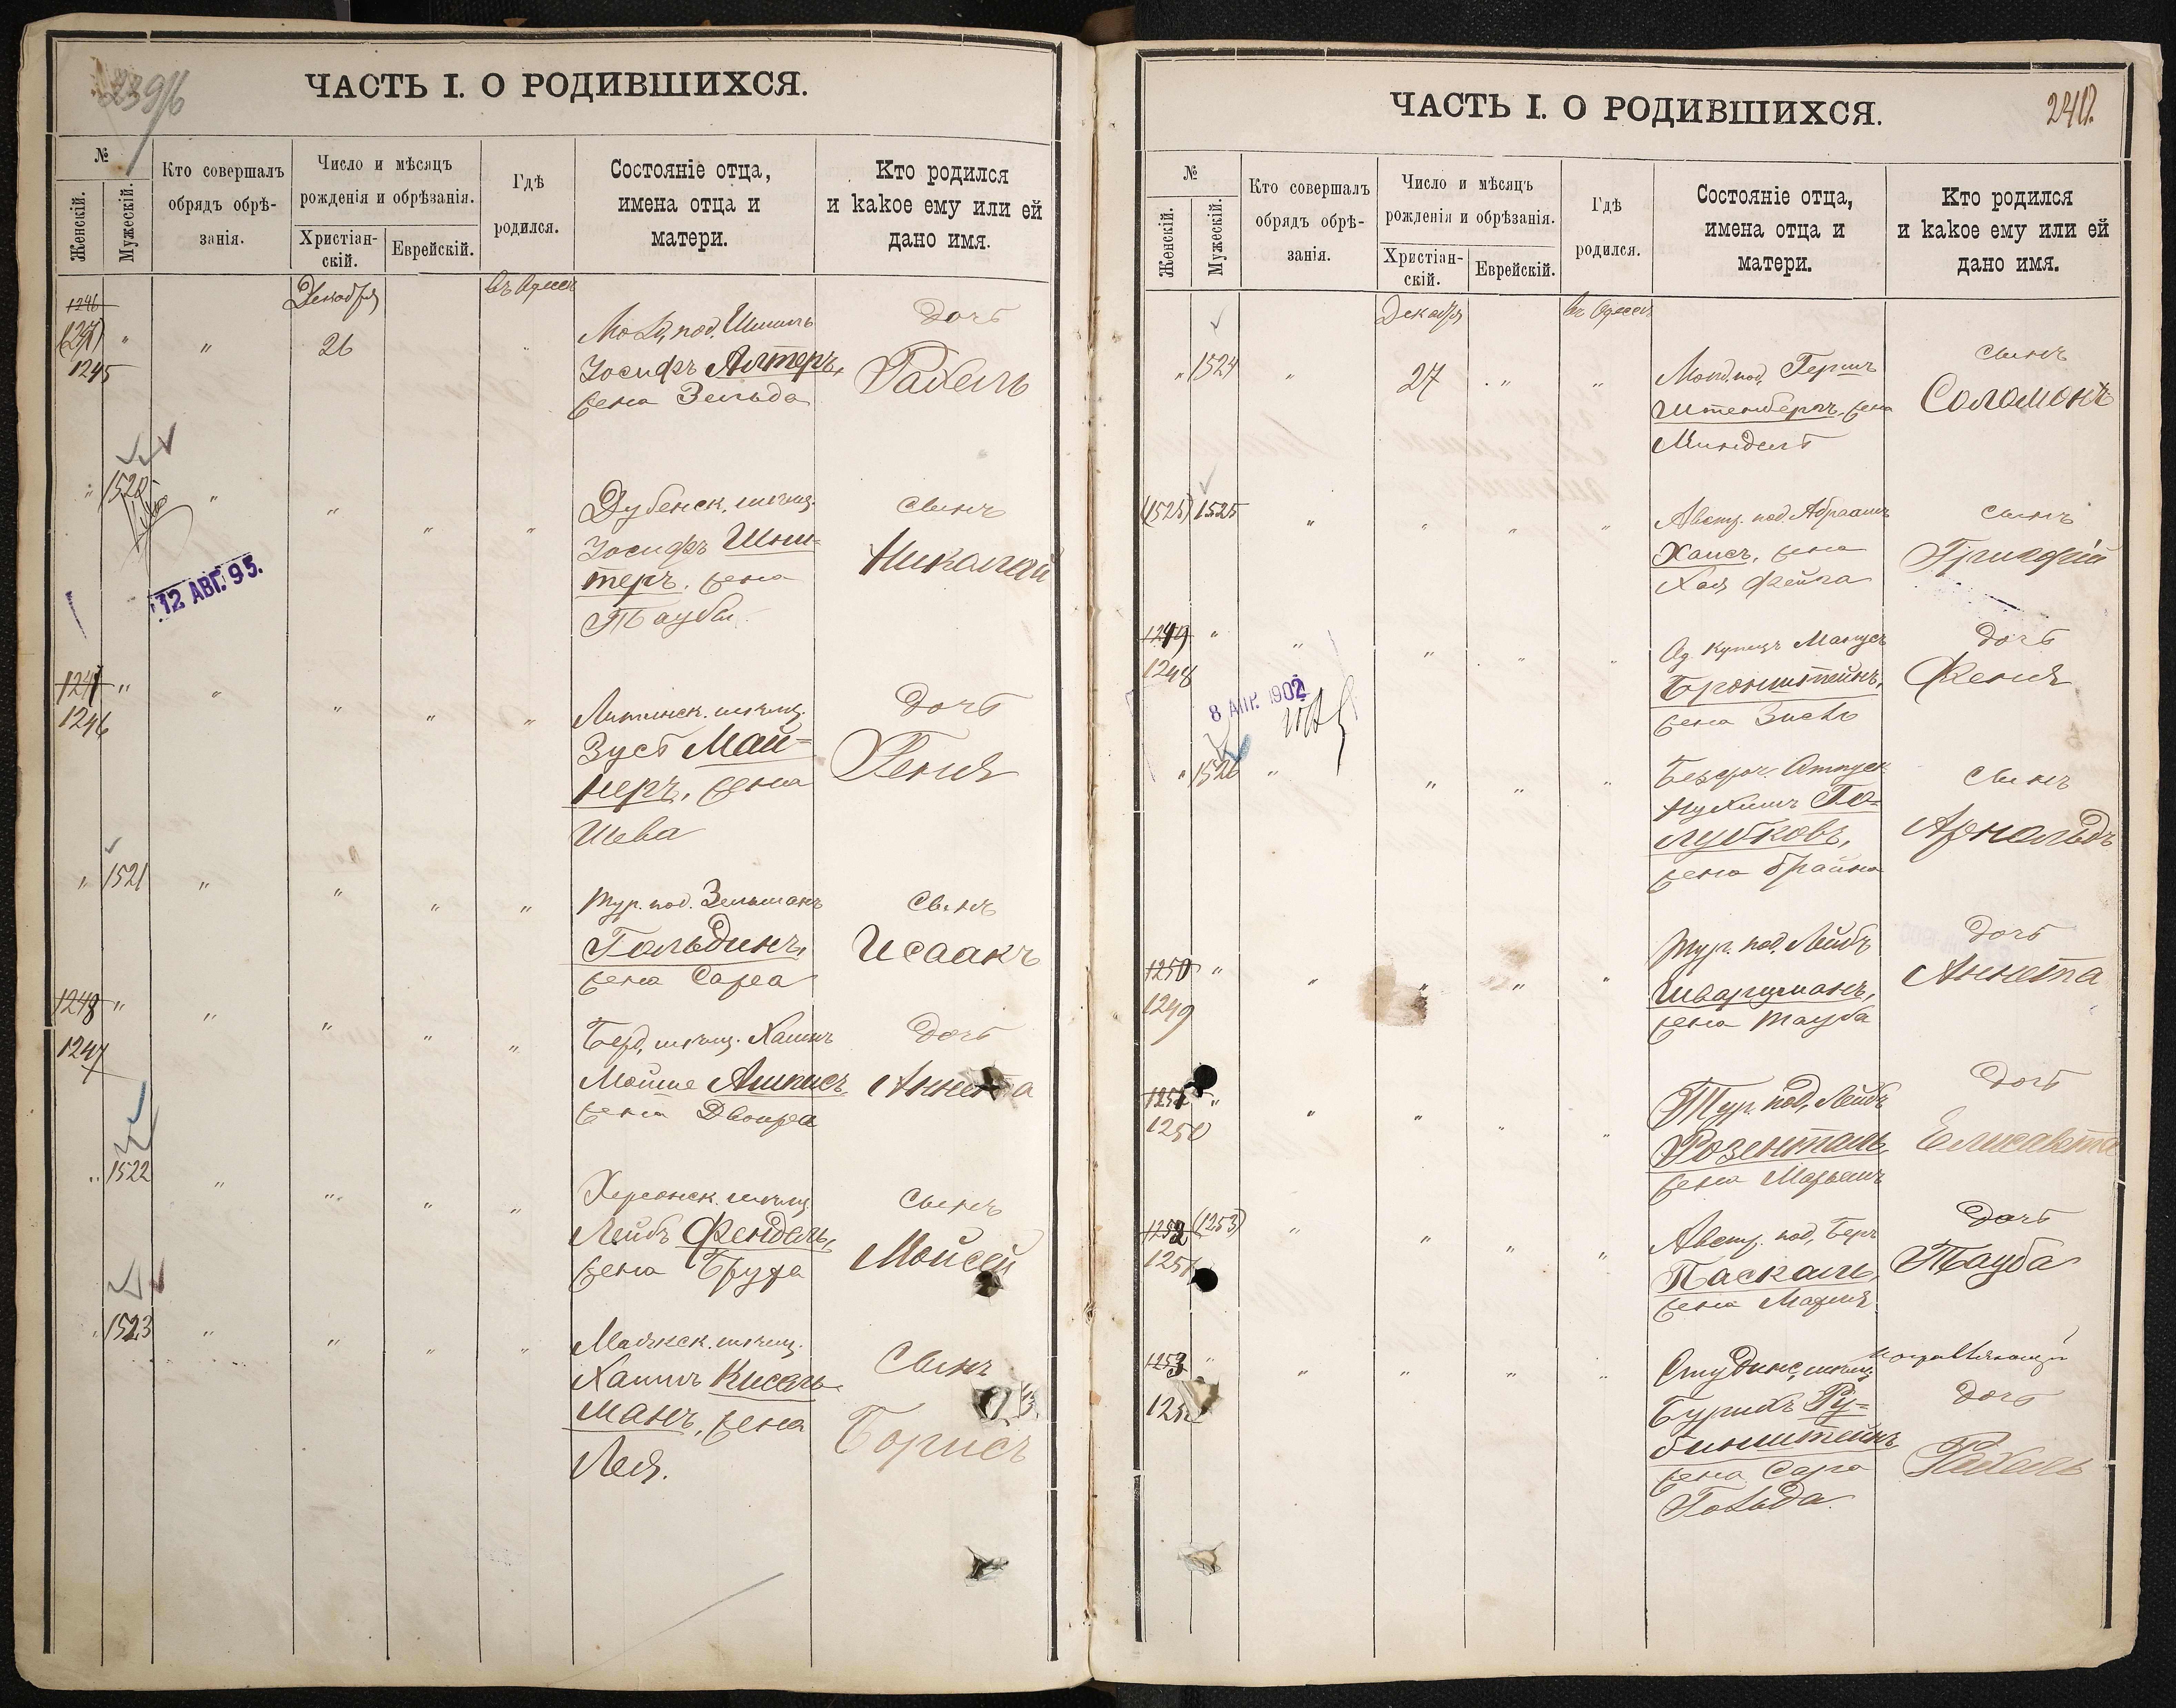 239/б
ЧАСТЬ I. О РОДИВШИХСЯ.
№
Женскій.
Мужескій.
Кто совершалъ
обрядъ обрѣ-
занія.
Число и мѣсяцъ
рожденія и обрѣзанія.
Христіан-
скій.
Еврейскій.
Гдѣ
родился.
Состояніе отца,
имена отца и
матери.
Кто родился
и какое ему или ей
дано имя.
Декабря
въ Одессѣ
1246
" " 26
1245
Іосифъ Алтеръ,
жена Зельда
Дочь
Рахель
" 1520 " " " "
Дубенск. мѣщ.
Іосифъ Шни-
теръ, жена
Таубы
Сынъ
Николай
12 АВГ. 95.
1247 " " " " "
1246
Литинск. мѣщ.
Зусь Май-
неръ, жена
Шева
Дочь
Реня
" 1521 " " " "
Тур. под. Зельманъ
Гольдинъ,
жена Сара
Сынъ
Исаакъ
1248 " " " " "
1247
Берд. мѣщ. Хаимъ
Мойше Ашкисъ
жена Двойра
Дочь
Аннета
" 1522 " " " "
Херсонск. мѣщ.
Лейбъ Фендель,
жена Бруха
Сынъ
Мойсей
" 1523 " " " "
Маякск. мѣщ.
Хаимъ Кисель-
манъ, жена
Лея.
Сынъ
Борисъ
ЧАСТЬ I. О РОДИВШИХСЯ.
240.
№
Женскій.
Мужескій.
Кто совершалъ
обрядъ обрѣ-
занія.
Число и мѣсяцъ
рожденія и обрѣзанія.
Христіан-
скій.
Еврейскій.
Гдѣ
родился.
Состояніе отца,
имена отца и
матери.
Кто родился
и какое ему или ей
дано имя.
Декабря
въ Одессѣ
" 1524 " 27 " "
Молд. под. Гершъ
Штенбергъ, жена
Миндель
Сынъ
Соломонъ
(1525) 1525 " " " "
Австр. под. Абрамъ
Хаисъ, жена
Хая Фейга
Сынъ
Григорій
1249 " " " " "
1248
Од. купецъ Манусъ
Бронштейнъ,
жена Зисль
Дочь
Феня
8 АПР. 1902
" 1526 " " " "
Безсроч. Отпуск.
Нухимъ Го-
лубковъ,
жена Брайна
Сынъ
Арнольдъ
1250 " " " " "
1249
Тур. под. Лейбъ
Шварцманъ,
жена Тауба
Дочь
Аннета
1251 " " " " "
1250
Тур. под. Лейбъ
Розенталь,
жена Марьямъ
Дочь
Елисавета
1252 (1253) " " " "
1251
Австр. под. Беръ
Паскаль,
жена Марія
Дочь
Тауба
1253 " " " " "
125
мѣщ.
Бурихъ Ру-
бинштейнъ
жена Сара
Гольда
Дочь
Рахель